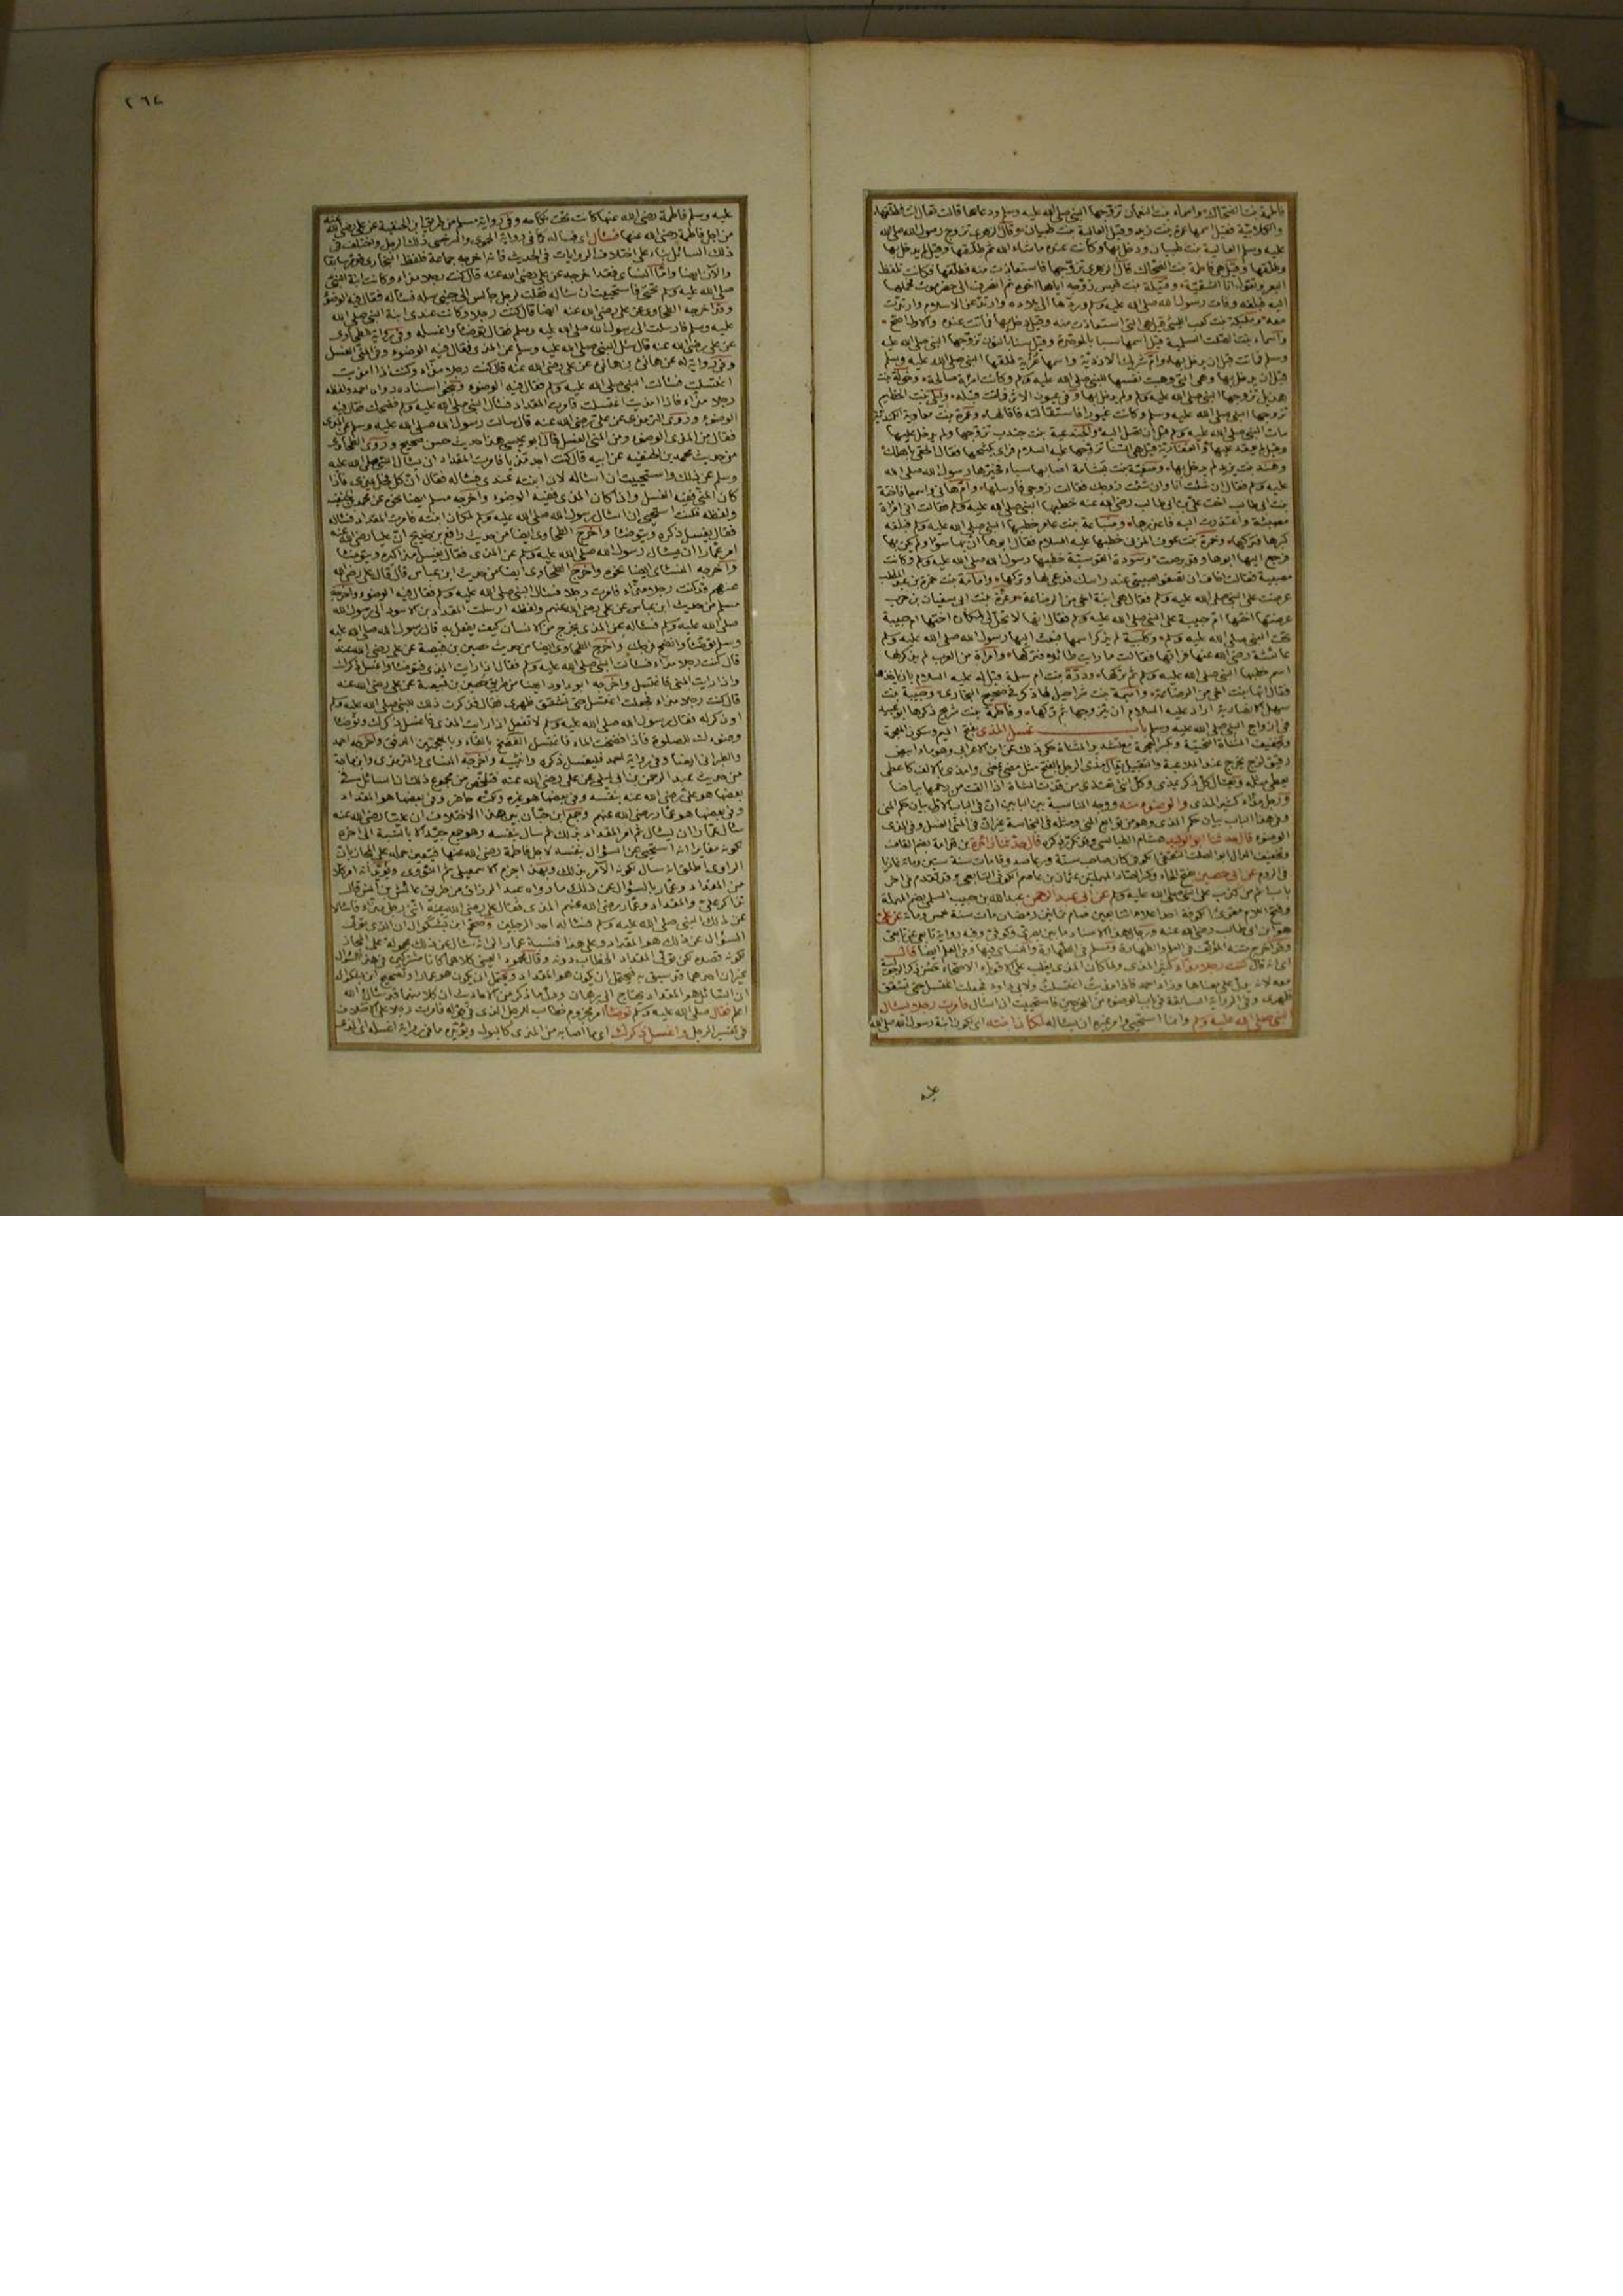 ٢٦٤
فاطمة بنت الضحاك واسماء بنت النعمان تزوجها النبي صلى الله عليه وسلم ودعاها قالت تعال انت فطلقها
والكلابية فقيل اسمها عمرة بنت زيد وقيل العالية بنت ظبيان وقال الزهري تزوج رسول الله صلى الله
عليه وسلم العالية بنت ظبيان ودخل بها وكانت عنده ماشاء الله ثم طلقها وقيل لم يدخل بها
وطلقها وقيل هي فاطمة بنت الضحاك قال الزهري تزوجها فاستعاذت منه فطلقها فكانت تلقط
البعر وتقول انا الشقية وقتيلة بنت قيس زوجه اياها اخوها ثم انصرف الى حضرموت فحملها
اليه فبلغه وفات رسول الله صلى الله عليه وسلم وردها الى بلاده وارتد عن الاسلام وارتدت
معه ومليكة بنت كعب الليثي قيل هي التي استعاذت منه وقيل دخل بها فماتت عنده والاول اصح
واسماء بنت الصلت السلمية قيل اسمها سبا بالموحدة وقيل سنا بالنون تزوجها النبي صلى الله عليه
وسلم فماتت قبل ان يدخل بها وام شريك الازدية واسمها غزية طلقها النبي صلى الله عليه وسلم
قبل ان يدخل بها وهي التي وهبت نفسها للنبي صلى الله عليه وسلم وكانت امراة صالحة وخولة بنت
هذيل تزوجها النبي صلى الله عليه وسلم ولم يدخل بها وفي عيون الاثر فماتت قبله وليلى بنت الخطيم
تزوجها النبي صلى الله عليه وسلم وكانت غيورا فاستقالته فاقالها وعمرة بنت معاوية الكندية
مات النبي صلى الله عليه وسلم قبل ان تصل اليه والجندعية بنت جندب تزوجها ولم يدخل عليها
وقيل لم يعقد عليها والغفارية قيل هي السنا تزوجها عليه السلام فراى بكشحها فقال الحقي باهلك
وهند بنت يزيد لم يدخل بها وصفية بنت بشامة اصابها سباء فخيرها رسول الله صلى الله
عليه وسلم فقال ان شئت انا وان شئت زوجك فقالت زوجي فارسلها وام هانئ واسمها فاختة
بنت ابي طالب اخت علي بن ابي طالب رضي الله عنه خطبها النبي صلى الله عليه وسلم فقالت اني امراة
مصبية واعتذرت اليه فاعذرها وضباعة بنت عامر خطبها النبي صلى الله عليه وسلم فبلغه
كبرها فتركها وجمرة بنت عوف المزني خطبها عليه السلام فقال ابوها ان بها سوءا ولم يكن بها
فرجع اليها ابوها وقد برصت وسودة القرشية خطبها رسول الله صلى الله عليه وسلم وكانت
مصبية فقالت اخاف ان تضغو صبيتي عند راسك فدعى لها وتركها وامامة بنت حمزة بن عبد المطلب
عرضت على النبي صلى الله عليه وسلم فقال هي ابنة اخي من الرضاعة وعزة بنت ابي سفيان بن حرب
عرضتها اختها ام حبيبة على النبي صلى الله عليه وسلم فقال انها لا تحل لي لمكان اختها ام حبيبة
تحت النبي صلى الله عليه وسلم وكلبية لم يذكر اسمها فبعث اليها رسول الله صلى الله عليه وسلم
عائشة رضي الله عنها فراتها فقالت ما رايت طائلا فتركها وامراة من العرب لم يذكر لها
اسم خطبها النبي صلى الله عليه وسلم ثم تركها ودرة بنت ام سلمة قيل له عليه السلام بان ياخذها
فقال انها بنت اخي من الرضاعة واميمة بنت شراحيل لها ذكر في صحيح البخاري وحبيبة بنت
سهل الانصارية اراد عليه السلام ان يتزوجها ثم تركها وفاطمة بنت شريح ذكرها ابو عبيد
في ازواج النبي صلى الله عليه وسلم باب غسل المذي بفتح الميم وسكون المعجمة
وتخفيف المثناة التحتية وبكسر المعجمة مع تشديد المثناة حكي ذلك عن ابن الاعرابي وهو ماء ابيض
رقيق لزج يخرج عند الملاعبة والتقبيل يقال مذى الرجل بالفتح مثل مضى يمضي وامذى بالالف كاعطى
يعطي مثله ويقال كل ذكر يمذي وكل انثى تقذي من قذت الشاة اذا القت من رحمها بياضا
ورجل مذاء كثير المذي والوضوء منه ووجه المناسبة بين البابين ان في الباب الاول بيان حكم المني
وفي هذا الباب بيان حكم المذي وهو من توابع المني ومثله في النجاسة غير ان في المني الغسل وفي المذي
الوضوء قال حدثنا ابو الوليد هشام الطيالسي وقد تكرر ذكره قال حدثنا زائدة بن قدامة بضم القاف
وتخفيف الدال ابو الصلت الثقفي الكوفي كان صاحب سنة ورعا صدوقا مات سنة ستين ومائة غازيا
في الروم عن ابي حصين بفتح الحاء وكسر الصاد المهملتين عثمان بن عاصم الكوفي التابعي وقد تقدم في اخر
باب اثم من كذب على النبي صلى الله عليه وسلم عن ابي عبد الرحمن عبد الله بن حبيب السلمي بضم المهملة
وفتح اللام مقرئ الكوفة احد اعلام التابعين صام ثمانين رمضان مات سنة خمس ومائة عن علي
هو ابن ابي طالب رضي الله عنه ورجال هذا الاسناد ما بين بصري وكوفي وفيه رواية تابعي عن تابعي
وقد اخرج متنه المؤلف في العلم والطهارة ومسلم في الطهارة والنسائي فيها وفي العلم ايضا قال
اي انه قال كنت رجلا مذاء كثير المذي ولما كان المذي يغلب على الاقوياء الاصحاء حسن ذكر الرجولية
معه لانه يدل على معناها وزاد احمد فاذا امذيت اغتسلت ولابي داود فجعلت اغتسل حتى تشقق
ظهري وفي الرواية السابقة في باب الوضوء من المخرجين فاستحييت ان اسال فامرت رجلا يسال
النبي صلى الله عليه وسلم وانما استحيى وامر غيره ان يساله لمكان ابنته اي لكون ابنة رسول الله صلى الله
عليه
عليه وسلم فاطمة رضي الله عنها كانت تحت نكاحه وفي رواية مسلم من طريق ابن الحنفية عن علي رضي الله عنه
من اجل فاطمة رضي الله عنها فسال اي فساله كما في رواية الحموي والسرخسي ذلك الرجل واختلف في
ذلك السائل بناء على اختلاف الروايات في الحديث فانه اخرجه جماعة فلفظ البخاري قد مر سابقا
والان ايضا واما النسائي فقد اخرجه عن علي رضي الله عنه قال كنت رجلا مذاء وكانت ابنة النبي
صلى الله عليه وسلم تحتي فاستحييت ان ساله فقلت لرجل جالس الى جنبي سله فساله فقال فيه الوضوء
وقد اخرجه الطحاوي عن علي رضي الله عنه ايضا قال كنت رجلا وكانت عندي ابنة النبي صلى الله
عليه وسلم فارسلت الى رسول الله صلى الله عليه وسلم فقال توضا واغسله وفي رواية للطحاوي
عن علي رضي الله عنه قال سئل النبي صلى الله عليه وسلم عن المذي فقال فيه الوضوء وفي المني الغسل
وفي رواية له عن هانئ بن هانئ عن علي رضي الله عنه قال كنت رجلا مذاء وكنت اذا امذيت
اغتسلت فسالت النبي صلى الله عليه وسلم فقال فيه الوضوء ونحو اسناده رواه احمد ولفظه
رجلا مذاء فاذا امذيت اغتسلت فامرت المقداد فسال النبي صلى الله عليه وسلم فضحك فقال فيه
الوضوء وروى الترمذي عن علي رضي الله عنه قال سالت رسول الله صلى الله عليه وسلم عن المذي
فقال من المذي الوضوء ومن المني الغسل قال ابو عيسى هذا حديث حسن صحيح وروى الطحاوي
من حديث محمد بن الحنفية عن ابيه قال كنت اجد مذيا فامرت المقداد ان يسال النبي صلى الله عليه
وسلم عن ذلك واستحييت ان اساله لان ابنته عندي فساله فقال ان كل فحل يمذي فاذا
كان المني ففيه الغسل واذا كان المذي ففيه الوضوء واخرجه مسلم ايضا نحوه عن محمد بن الحنفية
ولفظه فكنت استحيي ان اسال رسول الله صلى الله عليه وسلم لمكان ابنته فامرت المقداد فساله
فقال يغسل ذكره ويتوضا واخرج الطحاوي ايضا من حديث رافع بن خديج ان عليا رضي الله عنه
امر عمارا ان يسال رسول الله صلى الله عليه وسلم عن المذي فقال يغسل مذاكيره ويتوضا
واخرجه النسائي ايضا نحوه واخرج الطحاوي ايضا من حديث ابن عباس قال قال علي رضي الله
عنهم قد كنت رجلا مذاء فامرت رجلا فسال النبي صلى الله عليه وسلم فقال فيه الوضوء واخرجه
مسلم من حديث ابن عباس عن علي رضي الله عنهم ولفظه ارسلت المقداد بن الاسود الى رسول الله
صلى الله عليه وسلم فساله عن المذي يخرج من الانسان كيف يفعل به قال رسول الله صلى الله عليه
وسلم توضا وانضح فرجك واخرج الطحاوي ايضا من حديث حصين بن قبيصة عن علي رضي الله عنه
قال كنت رجلا مذاء فسالت النبي صلى الله عليه وسلم فقال اذا رايت المذي فتوضا واغسل ذكرك
واذا رايت المني فاغتسل واخرجه ابو داود ايضا من طريق حصين بن قبيصة عن علي رضي الله عنه
قال كنت رجلا مذاء فجعلت اغتسل حتى تشقق ظهري فقال فذكرت ذلك للنبي صلى الله عليه وسلم
او ذكر له فقال رسول الله صلى الله عليه وسلم لا تفعل اذا رايت المذي فاغسل ذكرك وتوضا
وضوءك للصلوة فاذا فضخت الماء فاغتسل الفضخ بالفاء وبالمعجمتين الدفق واخرجه احمد
والطبراني ايضا وفي رواية احمد فليغسل ذكره وانثييه واخرجه النسائي والترمذي وابن ماجة
من حديث عبد الرحمن بن ابي ليلى عن علي رضي الله عنه فتلخص من مجموع ذلك ان السائل في
بعضها هو علي رضي الله عنه بنفسه وفي بعضها هو غيره ولكنه حاضر وفي بعضها هو المقداد
وفي بعضها هو عمار رضي الله عنهم وجمع ابن حبان بين هذا الاختلاف ان عليا رضي الله عنه
سال عمارا ان يسال ثم امر المقداد بذلك ثم سال بنفسه وهو جمع جيد الا بالنسبة الى اخره
لكونه مغايرا انه استحيى عن السؤال بنفسه لاجل فاطمة رضي الله عنها فيتعين حمله على المجاز بان
الراوي اطلق انه سال لكونه الامر بذلك وبهذا جزم الاسمعيلي ثم النووي ويؤيد انه امر كلا
من المقداد وعمار بالسؤال عن ذلك ما رواه عبد الرزاق من طريق عائش بن انس قال
تذاكر علي والمقداد وعمار رضي الله عنهم المذي فقال علي رضي الله عنه انني رجل مذاء فاسالا
عن ذلك النبي صلى الله عليه وسلم فساله احد الرجلين وصحح ابن بشكوال ان الذي تولى
السؤال عن ذلك هو المقداد وعلى هذا فنسبة عمار الى انه سال عن ذلك محمولة على المجاز
لكونه قصده لكن تولى المقداد الخطاب دونه وقال محمود العيني كلاهما كانا مشتركين في هذا السؤال
غير ان احدهما قد سبق به فيحتمل ان يكون هو المقداد ويحتمل ان يكون هو عمارا وتصحيح ابن بشكوال
ان السائل هو المقداد يحتاج الى برهان ودل ما ذكر من الاحاديث ان كلا منهما قد سال الله
اعلم فقال صلى الله عليه وسلم توضا امر مجزوم خطاب للرجل الذي في قوله فامرت رجلا على الاختلاف
في تفسير الرجل واغسل ذكرك اي ما اصابه من المذي كالبول ويؤيده ما في رواية اغسله اي المذي